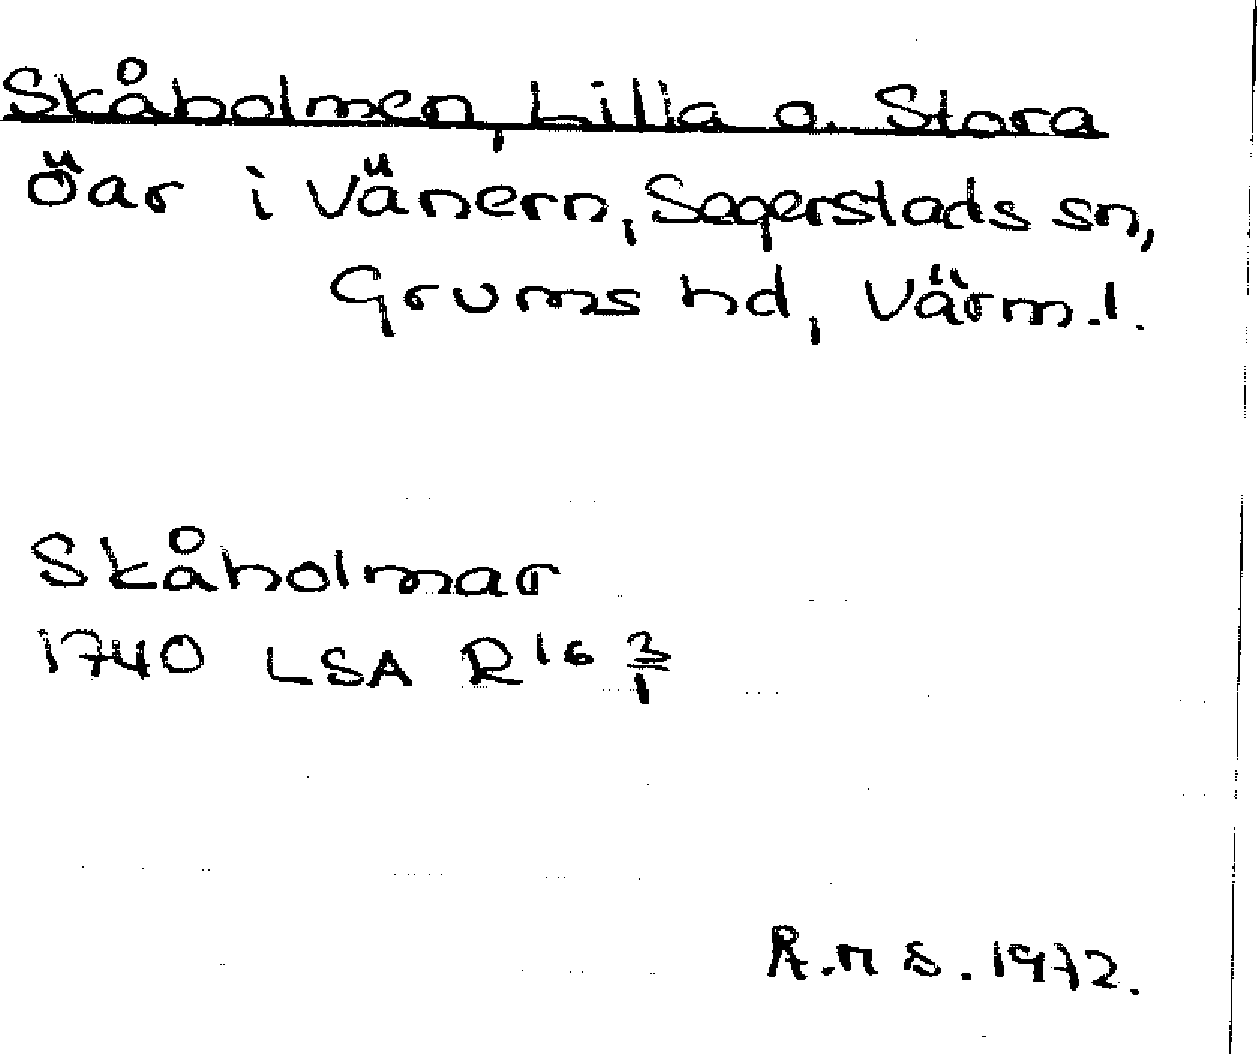 Skåholmen, Lilla o. Stora
Öar i Vänern, Segerstads sn,
Grums hd, Värm.l.
Skåholmar
1740 LSA R16 3/1
R.n S. 1972.